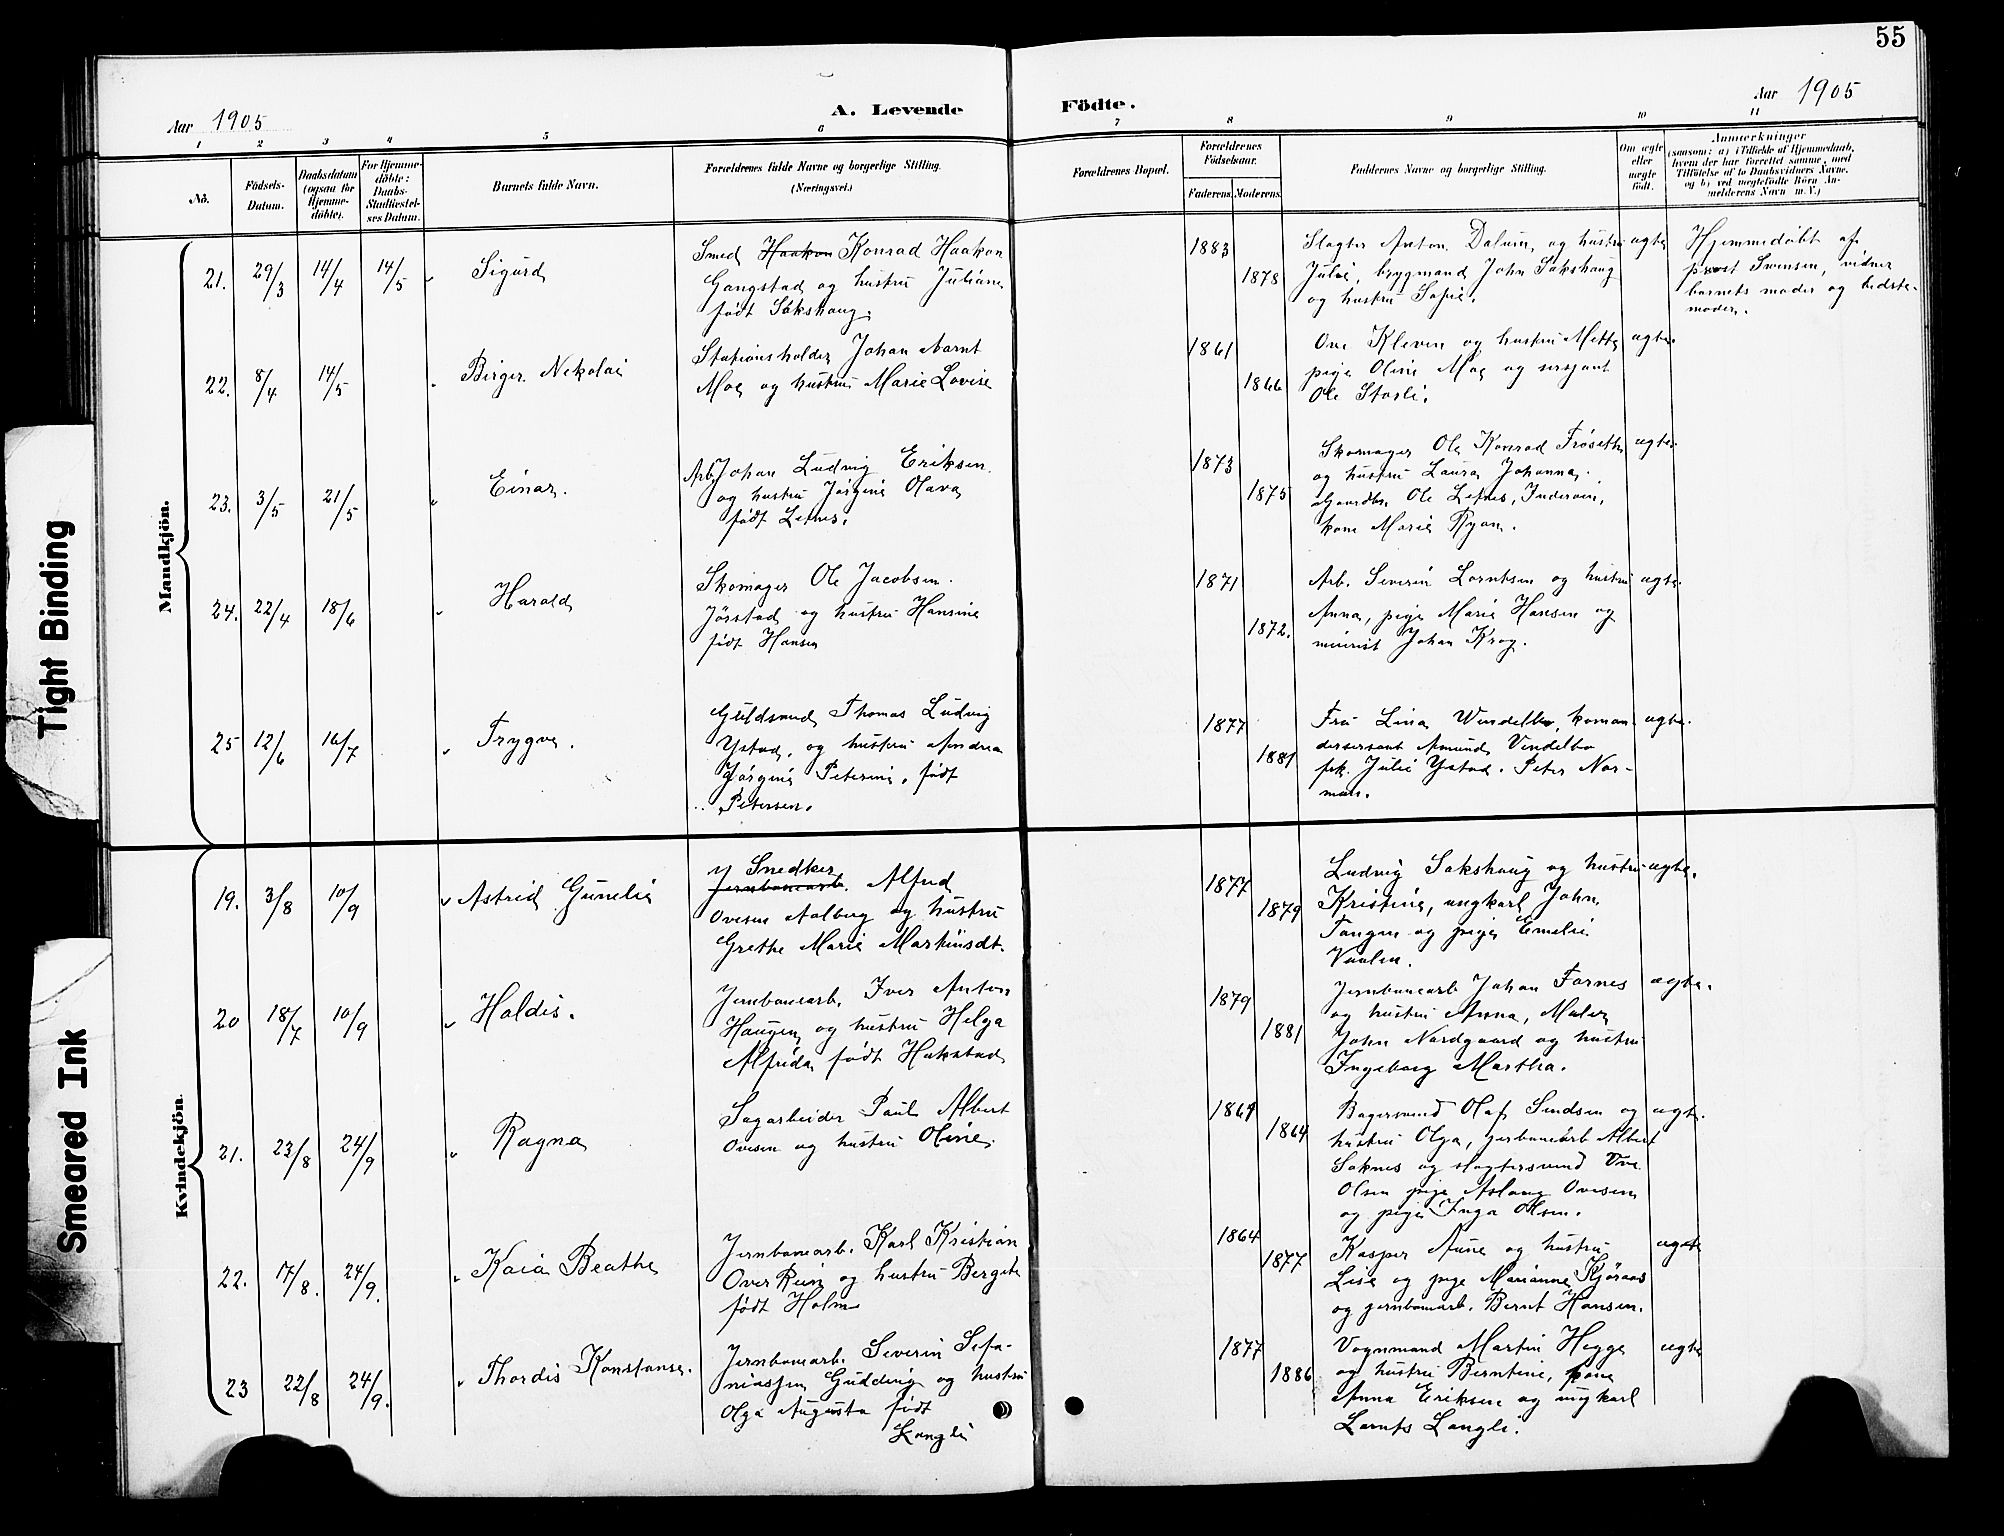 55
Aar 1905
A. Levende Födte.
Aar 1905
1 2 3 4 5 6 7 8 9 10 11
No.
Födsels-
Datum.
Daabsdatum
(ogsaa for
Hjemme-
döbte).
For Hjemme-
döbte:
Daabs-
Stadfæstel-
ses Datum.
Barnets fulde Navn.
Forældrenes fulde Navne og borgerlige Stilling.
(Næringsvei.)
Forældrenes Bopæl.
Forældrenes
Födselsaar.
Faderens Moderens
Faddernes Navne og borgerlige Stilling.
Om ægte
eller
uægte
födt.
Anmærkninger
(saasom: a) i Tilfælde af Hjemmedaab,
hvem der har forrettet samme, med
Tilföielse af to Daabsvidners Navne,
og b) ved uægtefödte Börn An-
melderens Navn m. V.)
Mandkjön.
21. 29/3 14/4 14/5 Sigurd
Smed Haakon Konrad Haakon
Gangstad og hustru Juliane
født Sakshaug.
1883
1878
Slagter Anton Dalum, og hustru
Julie, brygmand John Sakshaug
og hustru Sofie.
ægte
Hjemmedøbt af
prost Svensen, vidner
barnets moder og bedste-
moder.
22. 8/4 14/5 Birger Nekolai
Stationsholder Johan Aarnt
Moe og hustru Marie Lovise
1861
1866
Ove Kleven og hustru Mette
pige Oline Moe og sersjant
Ole Stosli.
ægte
23. 3/5 21/5 Einar.
Arb. Johan Ludvig Eriksen
og hustru Jørgine Olava
født Letnes.
1873
1875
Skomager Ole Konrad Frøseth
og hustru Laura Johanna,
Gaardbr. Ole Letnes, Inderøen,
kone Marie Ryan.
ægte
24. 22/4 18/6 Harald
Skomager Ole Jacobsen
Jørstad og hustru Hansine
født Hansen
1871
1872.
Arb. Severin Lorntsen og hustru
Anna, pige Marie Hansen og
meierist Johan Krog.
ægte
25 12/6 16/7 Trygve.
Guldsmed Thomas Ludvig
Ystad, og hustru Andrea
Jørgine Petrine, født
Petersen.
1877
1881
Fru Lina Windelbo, koman-
dersersant Amund Vindelbo
frk. Julie Ystad. Peter Nor-
man.
ægte.
Kvindekjön.
19. 3/8 10/9 Astrid Gunelie
Snedker
Jernbanearb. Alfred
Ovesen Aalberg og hustru
Grethe Marie Martinsdt.
1877
1879
Ludvig Sakshaug og hustru
Kristine, ungkarl John
Tangen og pige Emelie
Vaalen.
ægte.
20 18/7 10/9 Haldis.
Jernbanearb. Iver Anton
Haugen og hustru Helga
Alfrida født Hakstad
1879
1881
Jernbanearb Johan Fornes
og hustru Anna, Maler
John Nordgaard og hustru
Ingeborg Martha.
ægte.
21. 23/8 24/9 Ragna
Sagarbeider Paul Albert
Ovesen og hustru Oline
1869
1864
Bagersvend Olaf Sendsen og
hustru Olga, jernbanearb Albert
Saknes og slagtersvend Ove
Olsen pige Aslaug Ovesen
og pige Inga Olsen.
ægte.
22. 17/8. 24/9. Kaia Beathe
Jernbanearb. Karl Kristian
Over Rein og hustru Bergite
født Holm
1864
1877
Kasper Aune og hustru
Lise og pige Marianne Kjøraas
og jernbanearb. Bernt Hansen.
ægte
23 22/8 24/9. Thordis Konstanse.
Jernbanearb. Severin Sefa-
niassen Gudding og hustru
Olga Augusta født
Langli
1877
1886
Vognmand Martin Hegge
og hustru Berntine, kone
Anna Eriksen og ungkarl
Lornts Langli.
ægte
Tight Binding
Smeared Ink